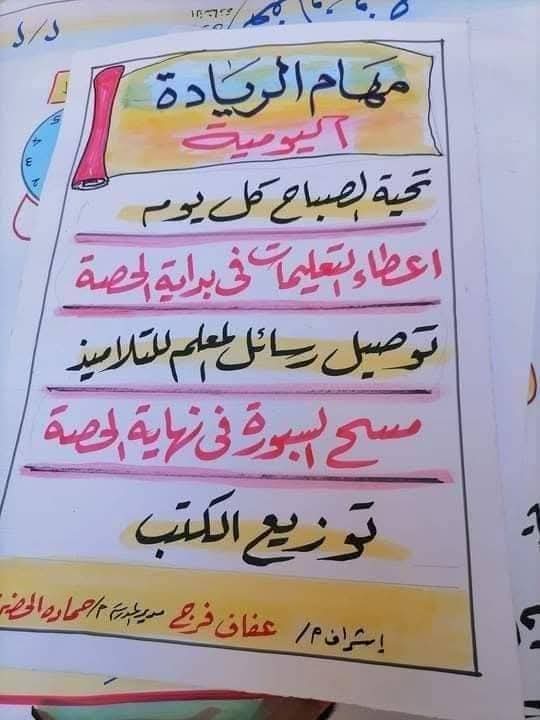 مهام الريادة
اليومية
تحية الصباح كل يوم
اعطاء التعليمات في بداية الحصة
توصيل رسائل المعلم للتلاميذ
مسح السبورة في نهاية الحصة
توزيع الكتب
إشراف م/ عفاف فرج مدير المدرسة م/ حماده